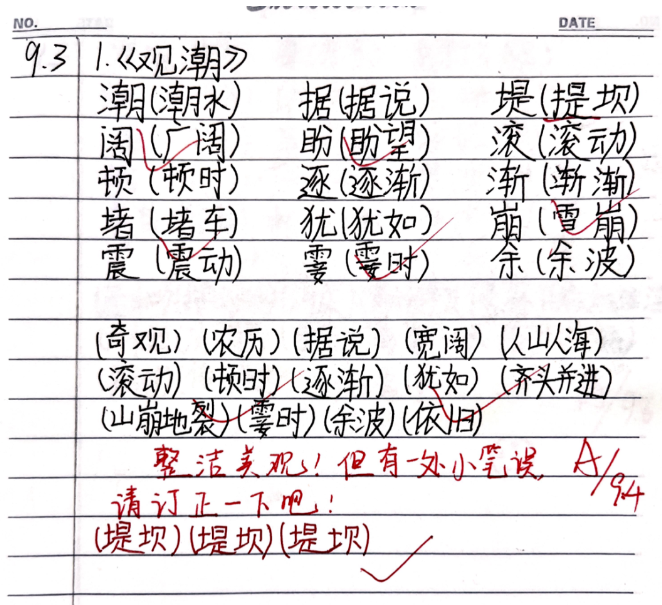 NO.
DATE
9.3 1.《观潮》
潮(潮水) 据(据说) 堤(提坝)
阔(广阔) 盼(盼望) 滚(滚动)
顿(顿时) 逐(逐渐) 渐(渐渐)
堵(堵车) 犹(犹如) 崩(雪崩)
震(震动) 霎(霎时) 余(余波)
(奇观) (农历) (据说) (宽阔) (人山人海)
(滚动) (顿时) (逐渐) (犹如) (齐头并进)
(山崩地裂) (霎时) (余波) (依旧)
整洁美观!但有一处小笔误, A/9.4
请订正一下吧!
(堤坝) (堤坝) (堤坝)